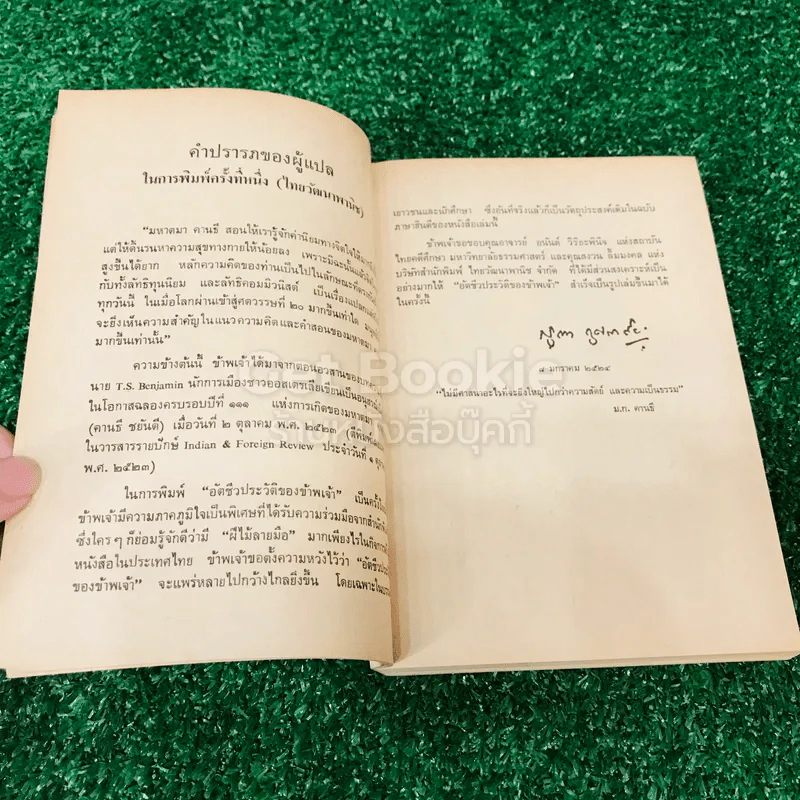 คำปรารภของผู้แปล
ในการพิมพ์ครั้งที่หนึ่ง (ไทยวัฒนาพานิช)
"มหาตมา คานธี สอนให้เรารู้จักค่านิยมทางจิตใจให้มาก
แต่ให้ดิ้นรนหาความสุขทางกายให้น้อยลง เพราะมิฉะนั้นแล้ว
สูงขึ้นได้ยาก หลักความคิดของท่านเป็นไปในลักษณะที่ตรงกันข้าม
กับทั้งลัทธิทุนนิยม และลัทธิคอมมิวนิสต์ เป็นเรื่องแปลก
ทุกวันนี้ ในเมื่อโลกผ่านเข้าสู่ศตวรรษที่ ๒๐ มากขึ้นเท่าใด
จะยิ่งเห็นความสำคัญในแนวความคิดและคำสอนของมหาตมา
มากขึ้นเท่านั้น"
ความข้างต้นนี้ ข้าพเจ้าได้มาจากตอนอวสานของ
นาย T.S. Benjamin นักการเมืองชาวออสเตรเลียเขียนเป็น
ในโอกาสฉลองครบรอบปีที่ ๑๑๑ แห่งการเกิดของมหาตมา
(คานธี ชยันตี) เมื่อวันที่ ๒ ตุลาคม พ.ศ. ๒๕๒๓ (ตีพิมพ์
ในวารสารรายปักษ์ Indian & Foreign Review ประจำวันที่ ๑
พ.ศ. ๒๕๒๓)
ในการพิมพ์ "อัตชีวประวัติของข้าพเจ้า" เป็นครั้ง
ข้าพเจ้ามีความภาคภูมิใจเป็นพิเศษที่ได้รับความร่วมมือจากสำนัก
ซึ่งใคร ๆ ก็ย่อมรู้จักดีว่ามี "ฝีไม้ลายมือ" มากเพียงไรในกิจการ
หนังสือในประเทศไทย ข้าพเจ้าขอตั้งความหวังไว้ว่า "อัตชีวประวัติ
ของข้าพเจ้า" จะแพร่หลายไปกว้างไกลยิ่งขึ้น โดยเฉพาะใน
เยาวชนและนักศึกษา ซึ่งอันที่จริงแล้วก็เป็นวัตถุประสงค์เดิมในฉบับ
ภาษาฮินดีของหนังสือเล่มนี้
ข้าพเจ้าขอขอบคุณอาจารย์ อนันต์ วิริยะพินิจ แห่งสถาบัน
ไทยคดีศึกษา มหาวิทยาลัยธรรมศาสตร์ และคุณสงวน ลิ้มมงคล แห่ง
บริษัทสำนักพิมพ์ ไทยวัฒนาพานิช จำกัด ที่ได้มีส่วนสงเคราะห์เป็น
อย่างมากให้ "อัตชีวประวัติของข้าพเจ้า" สำเร็จเป็นรูปเล่มขึ้นมาได้
ในครั้งนี้
๘ มกราคม ๒๕๒๔
"ไม่มีศาสนาอะไรที่จะยิ่งใหญ่ไปกว่าความสัตย์ และความเป็นธรรม"
ม.ก. คานธี
Get Bookie
ร้านหนังสือบุ๊คกี้